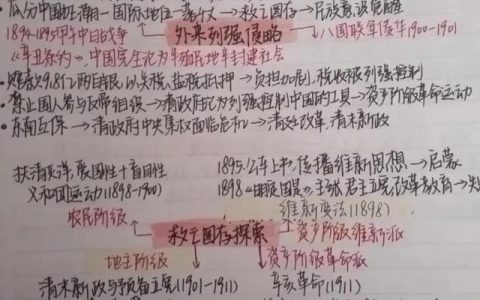 瓜分中国
国际地位一落千丈→救亡图存→民族意识觉醒
1894-1895甲午中日战争
外来列强侵略
八国联军侵华1900-1901
《辛丑条约》→中国完全沦为半殖民地半封建社会
赔款9.8亿两白银,以关税、盐税抵押→负担加剧,税收被列强控制
禁止国人参与反帝组织→清政府沦为列强控制中国的工具→资产阶级革命运动
东南互保→清政府中央集权面临危机→清处改革,清末新政
扶清灭洋,爱国性+盲目性
1895.公车上书,传播维新思想→启蒙
义和团运动(1898-1900)
1898《明定国是》主张君主立宪,改革教育→失
农民阶级
维新变法(1898)
救亡图存探索
资产阶级维新派
地主阶级
资产阶级革命派
清末新政与预备立宪(1901-1911)
辛亥革命(1911)